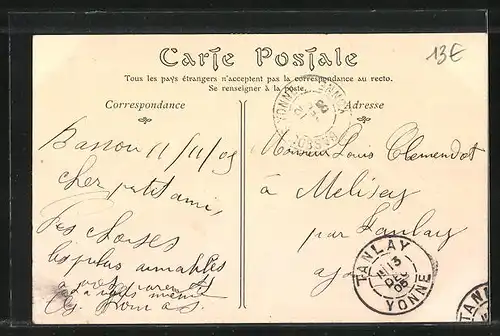 13E
Carte Postale
Tous les pays étrangers n'acceptent pas la correspondance au recto.
Se renseigner à la poste.
Correspondance
Adresse
YONNE
BASSOU
Bassou 11/11/05
Cher petit ami
Monsieur Louis Clemendot
à Melisey
par Tanlay
Les choses
les plus aimables
à vos parents
et à vous même
TANLAY
13
DEC
05
YONNE
TANL